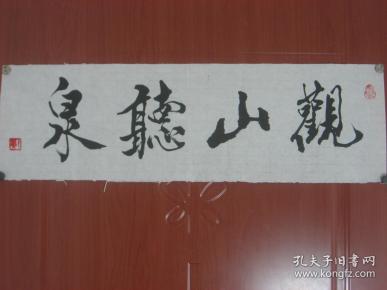 觀山聽泉
孔夫子旧书网
www.kongfz.com